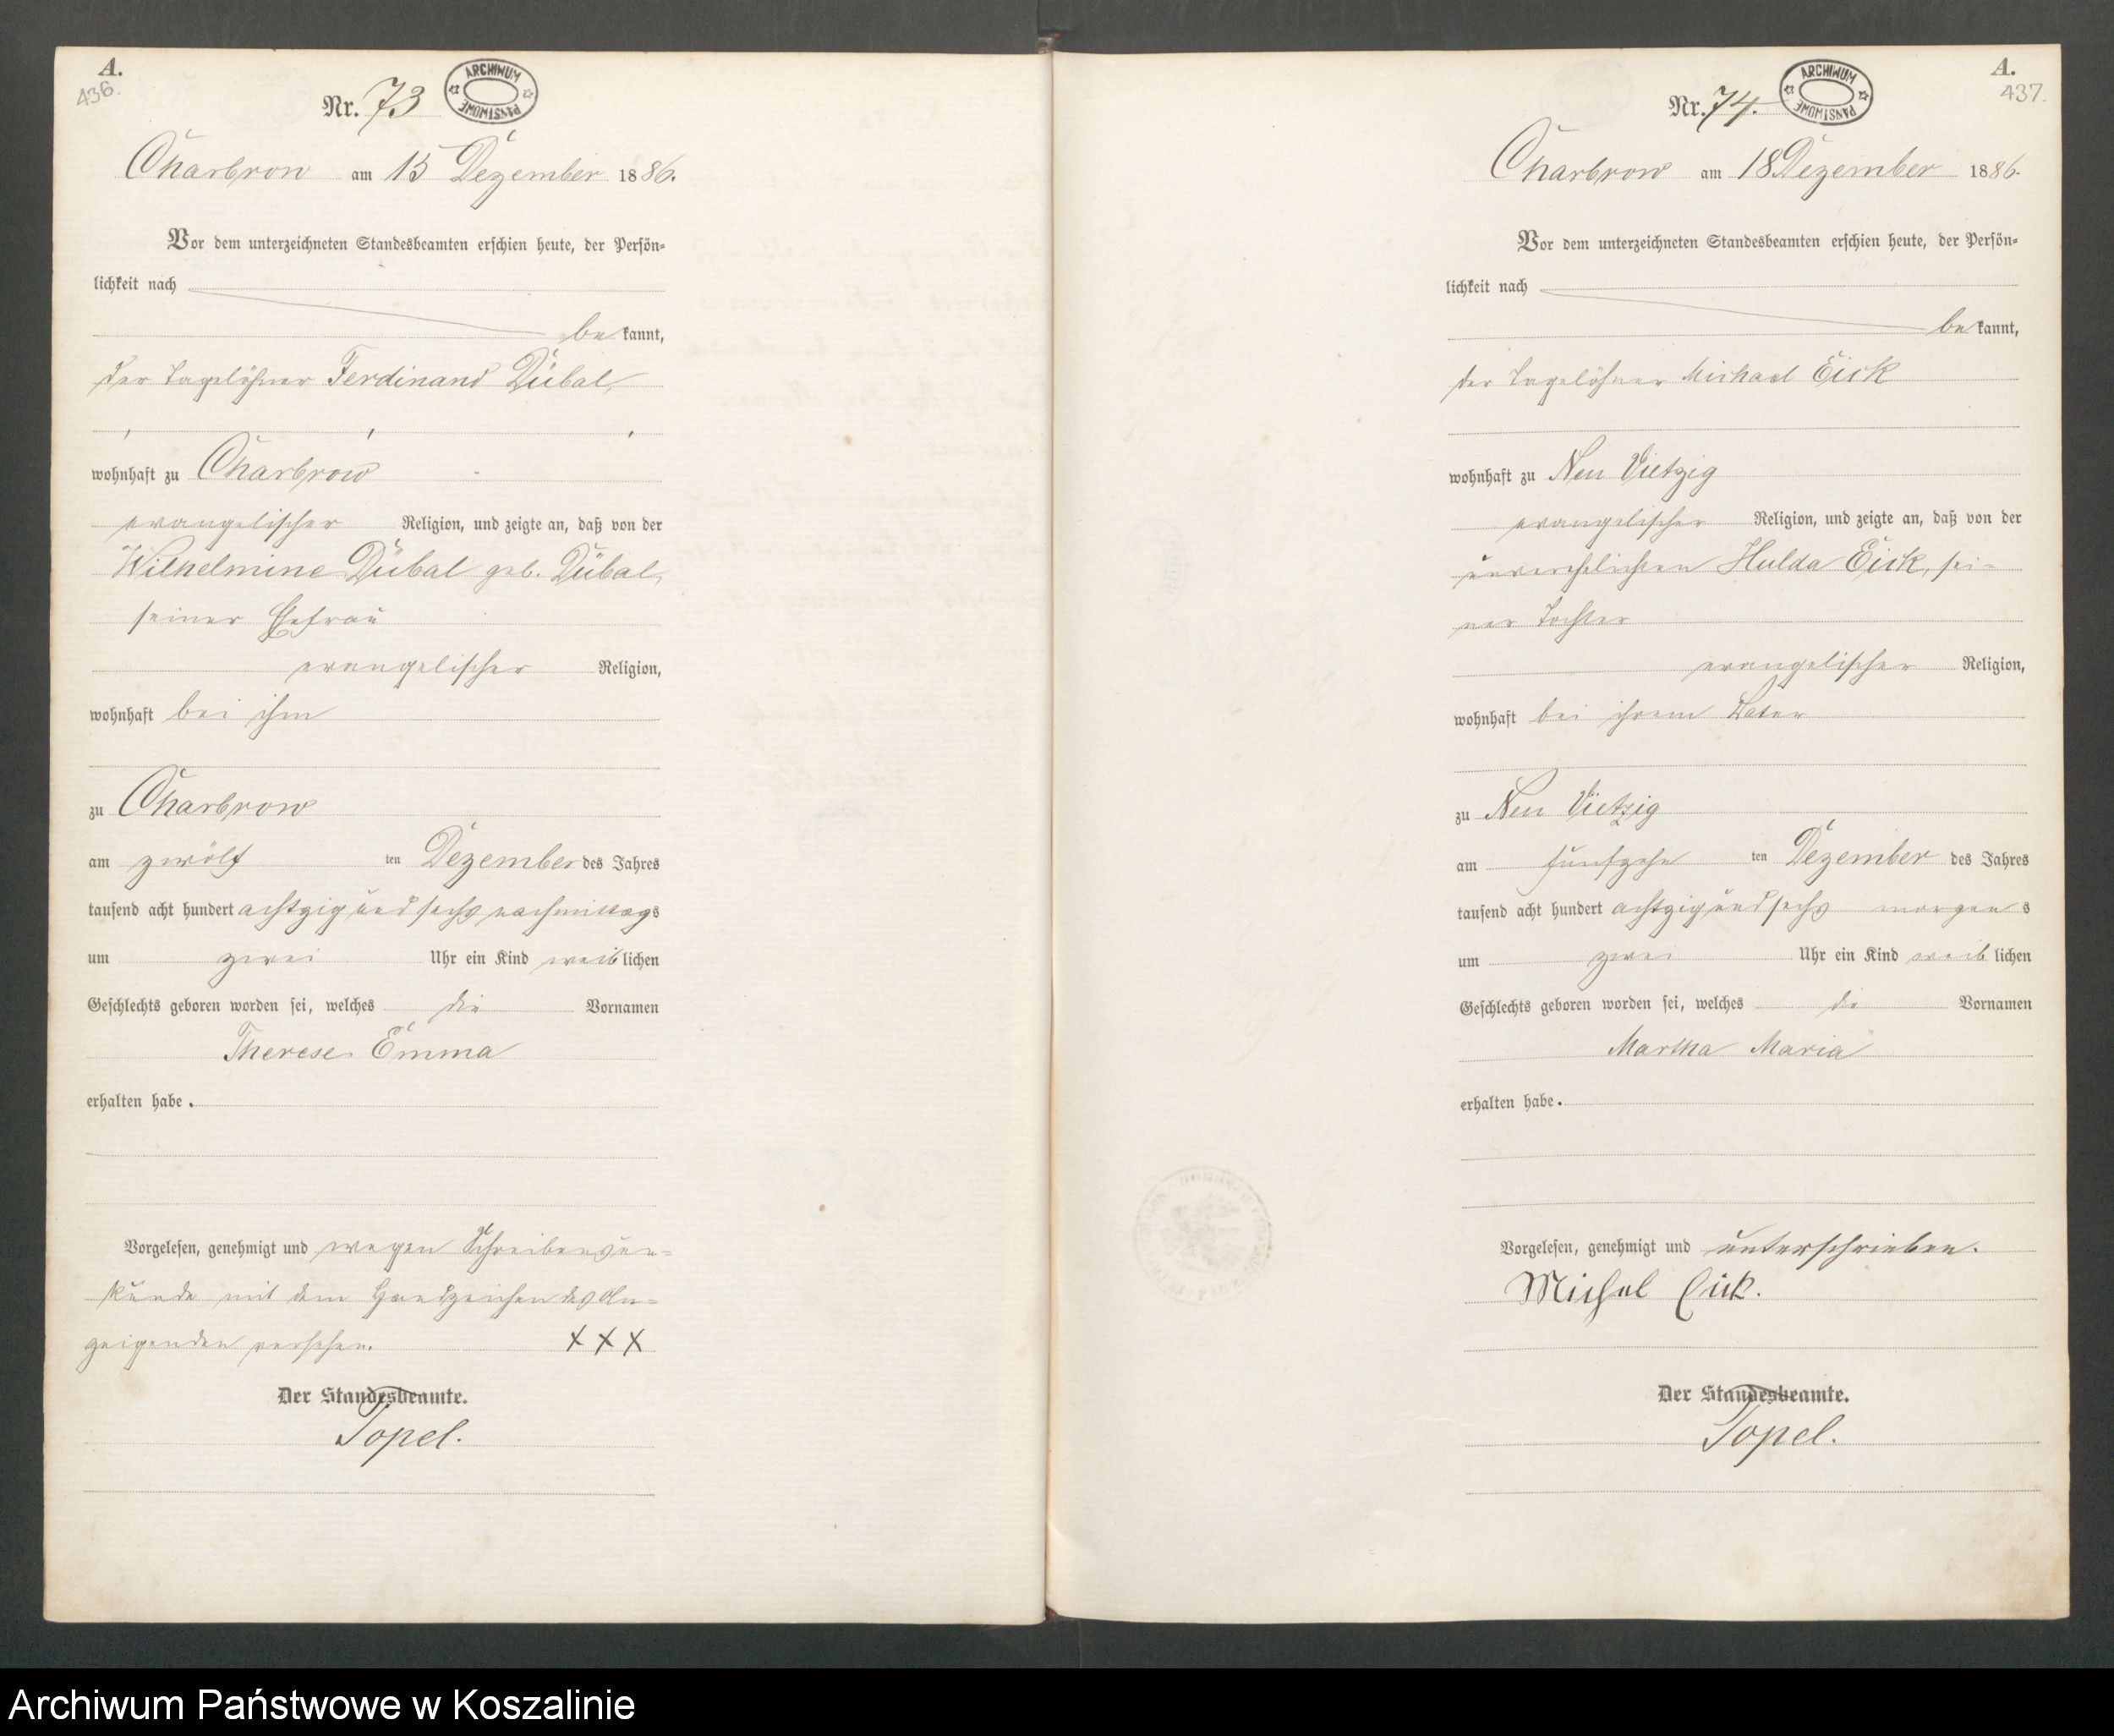 A.
436.
Nr. 73
ARCHIWUM PAŃSTWOWE
Charbrow am 15 Dezember 1886.
Vor dem unterzeichneten Standesbeamten erschien heute, der Persön=
lichkeit nach
bekannt,
der Tagelöhner Ferdinand Dübal,
wohnhaft zu Charbrow
evangelischer Religion, und zeigte an, daß von der
Wilhelmine Dübal geb. Dübal,
seiner Ehefrau
evangelischer Religion,
wohnhaft bei ihm
zu Charbrow
am zwölf ten Dezember des Jahres
tausend acht hundert achtzig und sechs nachmittags
um zwei Uhr ein Kind weiblichen
Geschlechts geboren worden sei, welches die Vornamen
Therese Emma
erhalten habe.
Vorgelesen, genehmigt und wegen Schreibensun=
kunde mit dem Handzeichen des An=
zeigenden versehen. XXX
Der Standesbeamte.
Topel.
A.
437.
Nr. 74.
ARCHIWUM PAŃSTWOWE
Charbrow am 18 Dezember 1886.
Vor dem unterzeichneten Standesbeamten erschien heute, der Persön=
lichkeit nach
bekannt,
der Tagelöhner Michael Eick
wohnhaft zu Neu Vietzig
evangelischer Religion, und zeigte an, daß von der
unverehelichten Hulda Eick, sei=
ner Tochter
evangelischer Religion,
wohnhaft bei ihrem Vater
zu Neu Vietzig
am fünfzehn ten Dezember des Jahres
tausend acht hundert achtzig und sechs morgens
um zwei Uhr ein Kind weiblichen
Geschlechts geboren worden sei, welches die Vornamen
Martha Maria
erhalten habe.
Vorgelesen, genehmigt und unterschrieben.
Michal Eick.
Der Standesbeamte.
Topel.
Archiwum Państwowe w Koszalinie